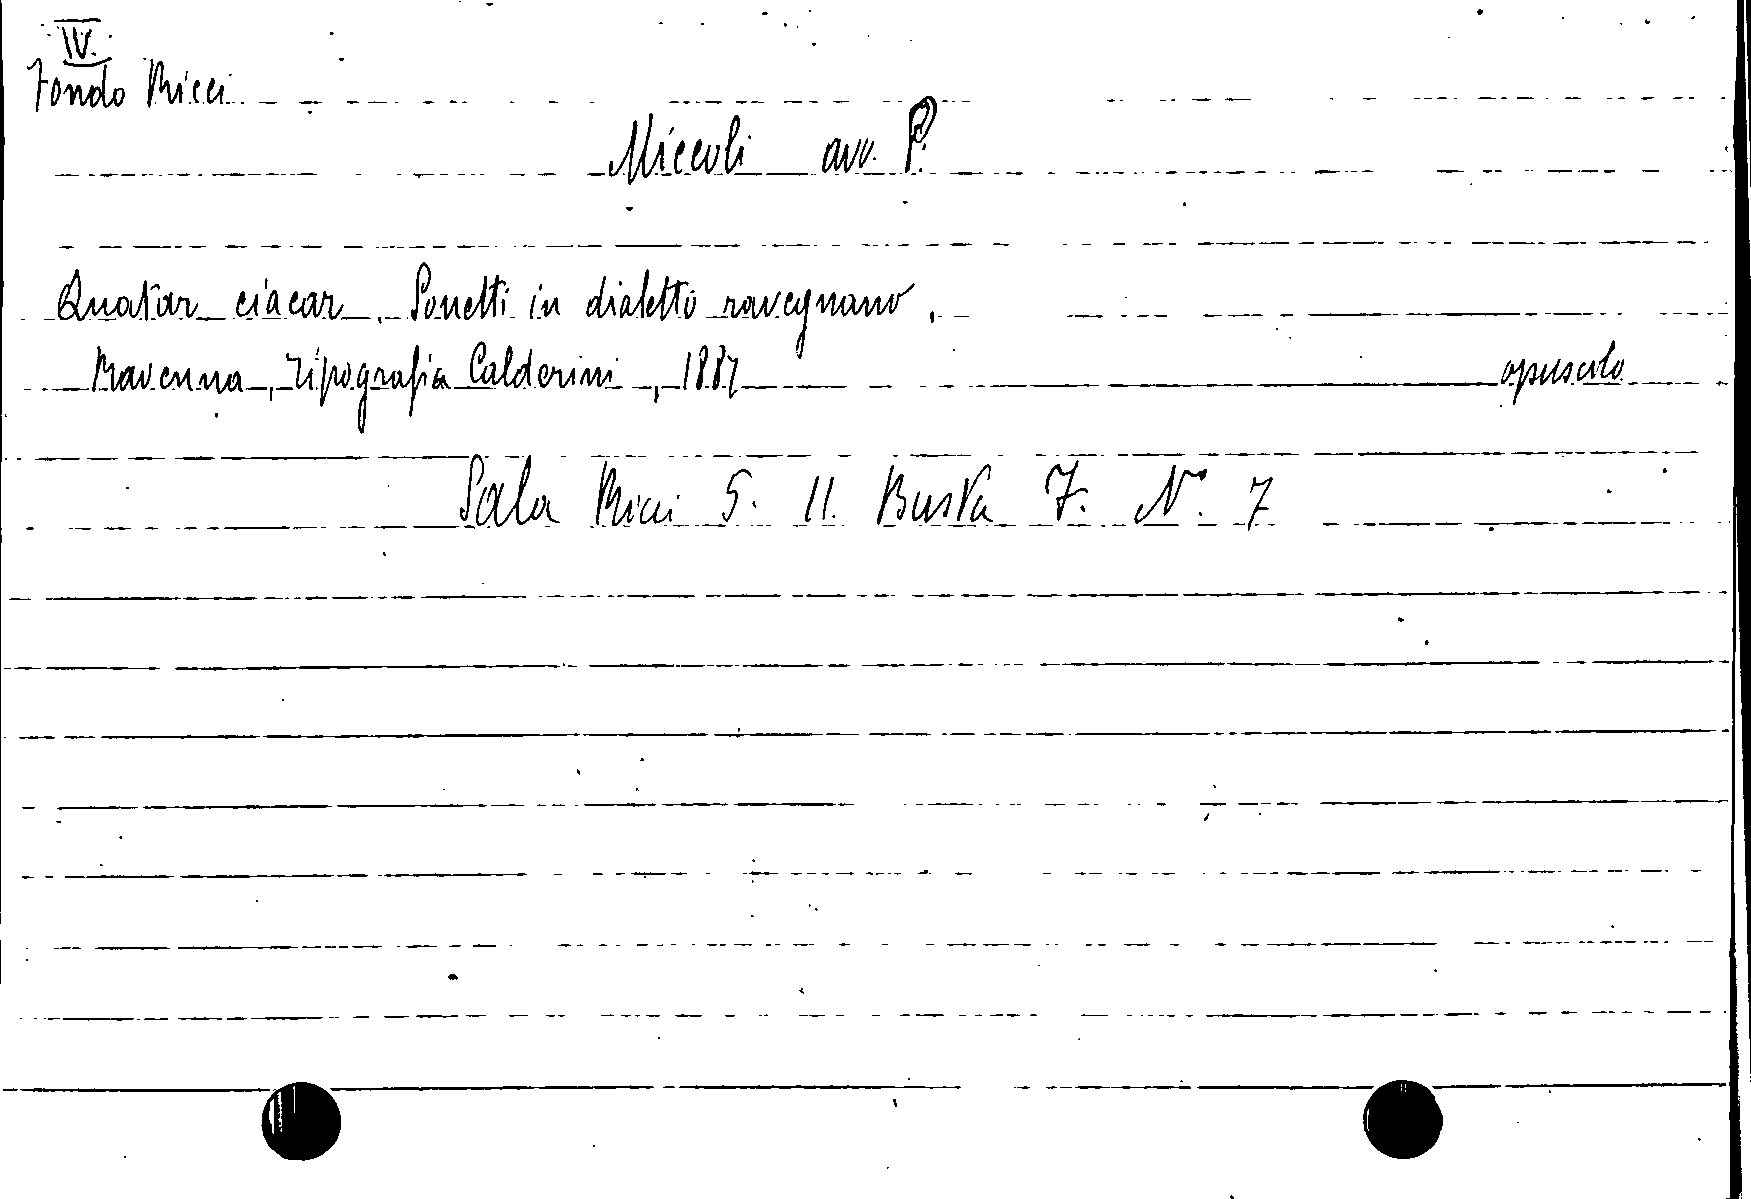 IV.
Fondo Ricci
Miccoli avv. P.
Quatar ciacar. Sonetti in dialetto ravegnano.
Ravenna, Tipografia Calderini, 1887 opuscolo
Sala Ricci 5. 11. Busta 7. N. 7